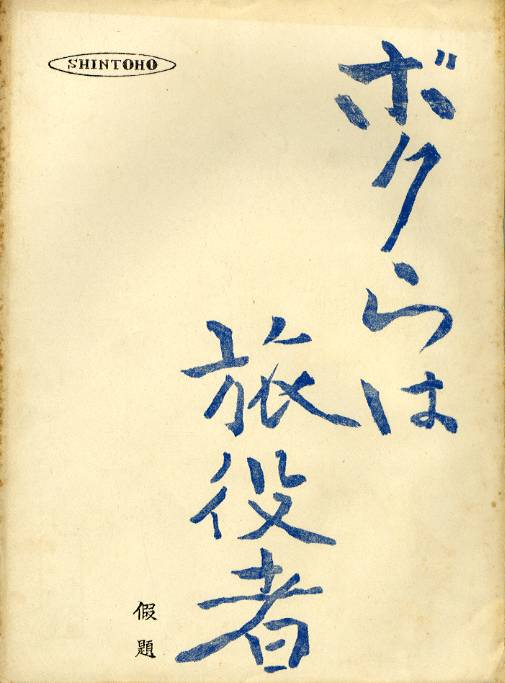 SHINTOHO
ボクらは
旅役者
假題